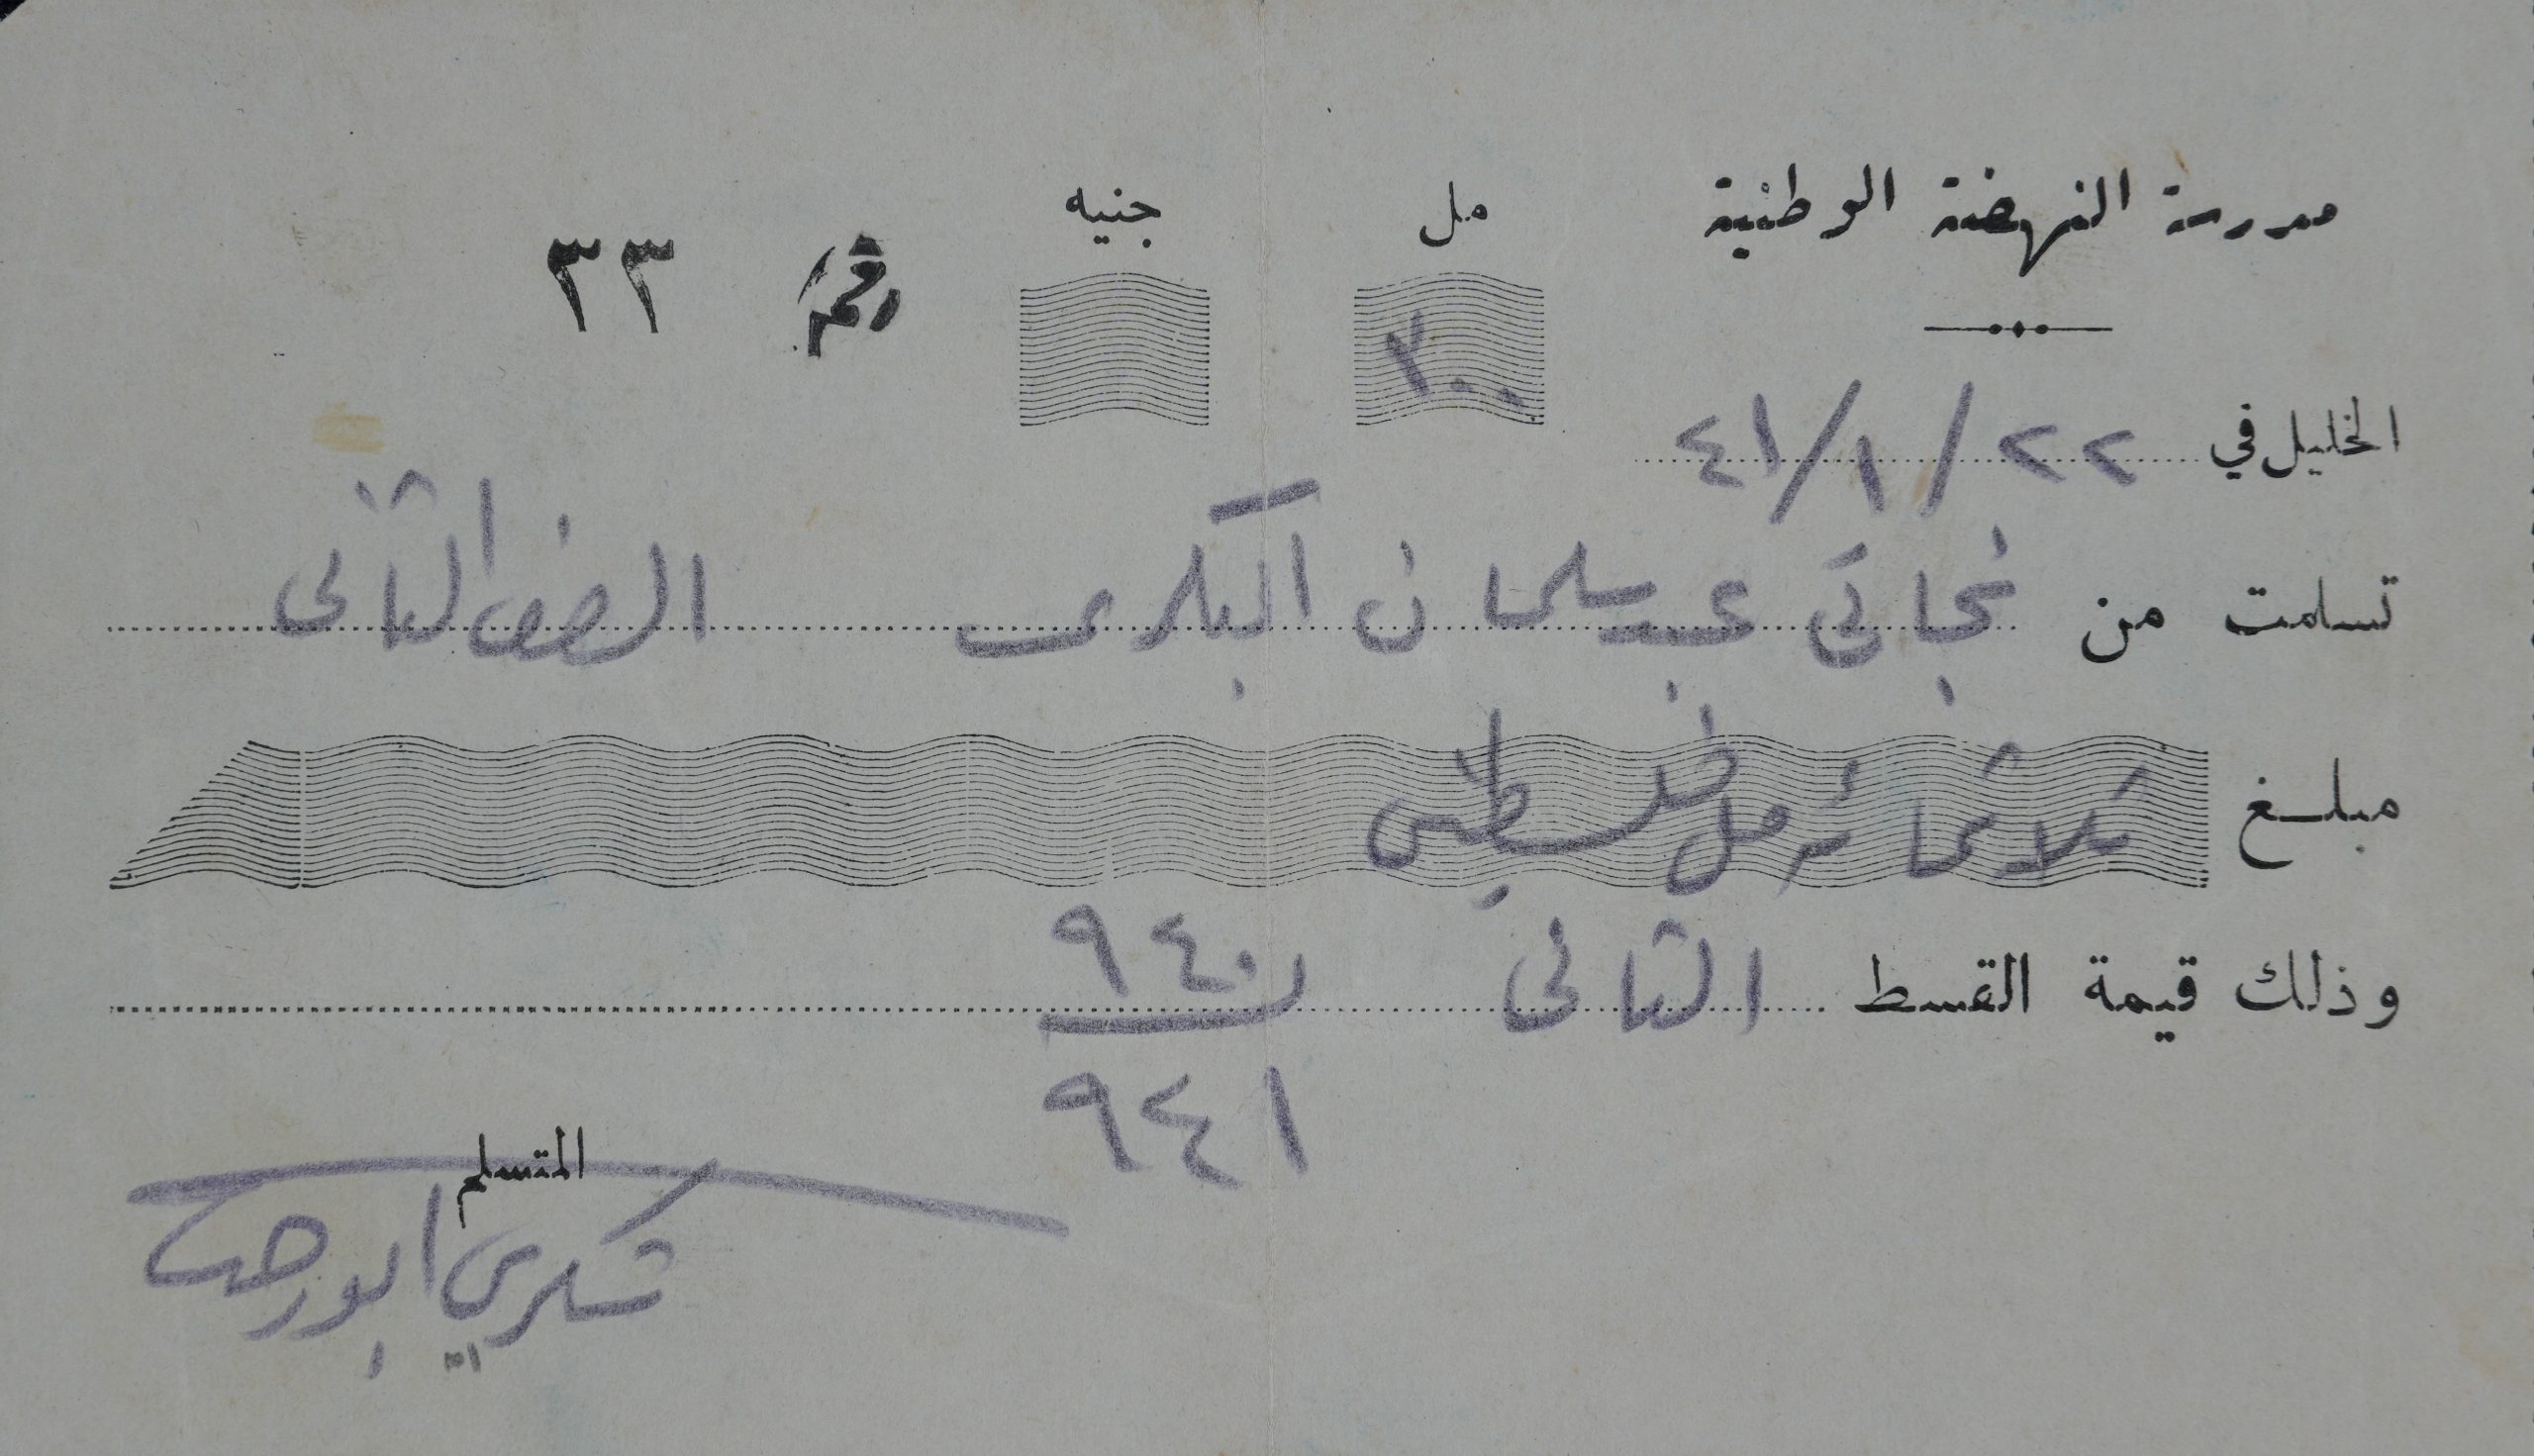 مدرسة النهضة الوطنية
مل جنيه
رقم ٣٣
٣٠٠
الخليل في ٢٢/١/٤١
تسلمت من نجاتي عبد سلمان البكري الصف الثاني
مبلغ ثلاثمائة مل فلسطيني
وذلك قيمة القسط الثاني ٩٤٠
٩٤١
المتسلم
شكري ابو رجب